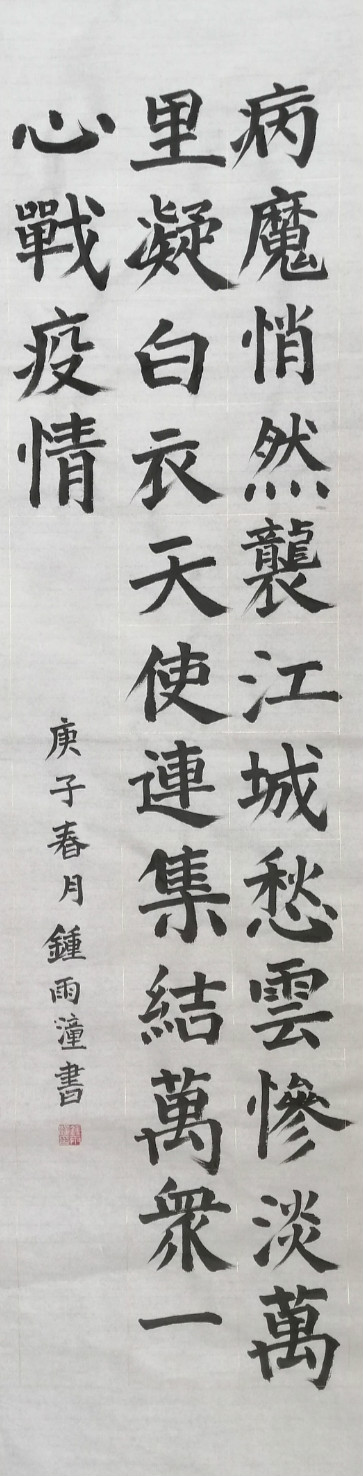 病魔悄然襲江城愁雲慘淡萬
里凝白衣天使連集結萬衆一
心戰疫情
庚子春月鍾雨潼書